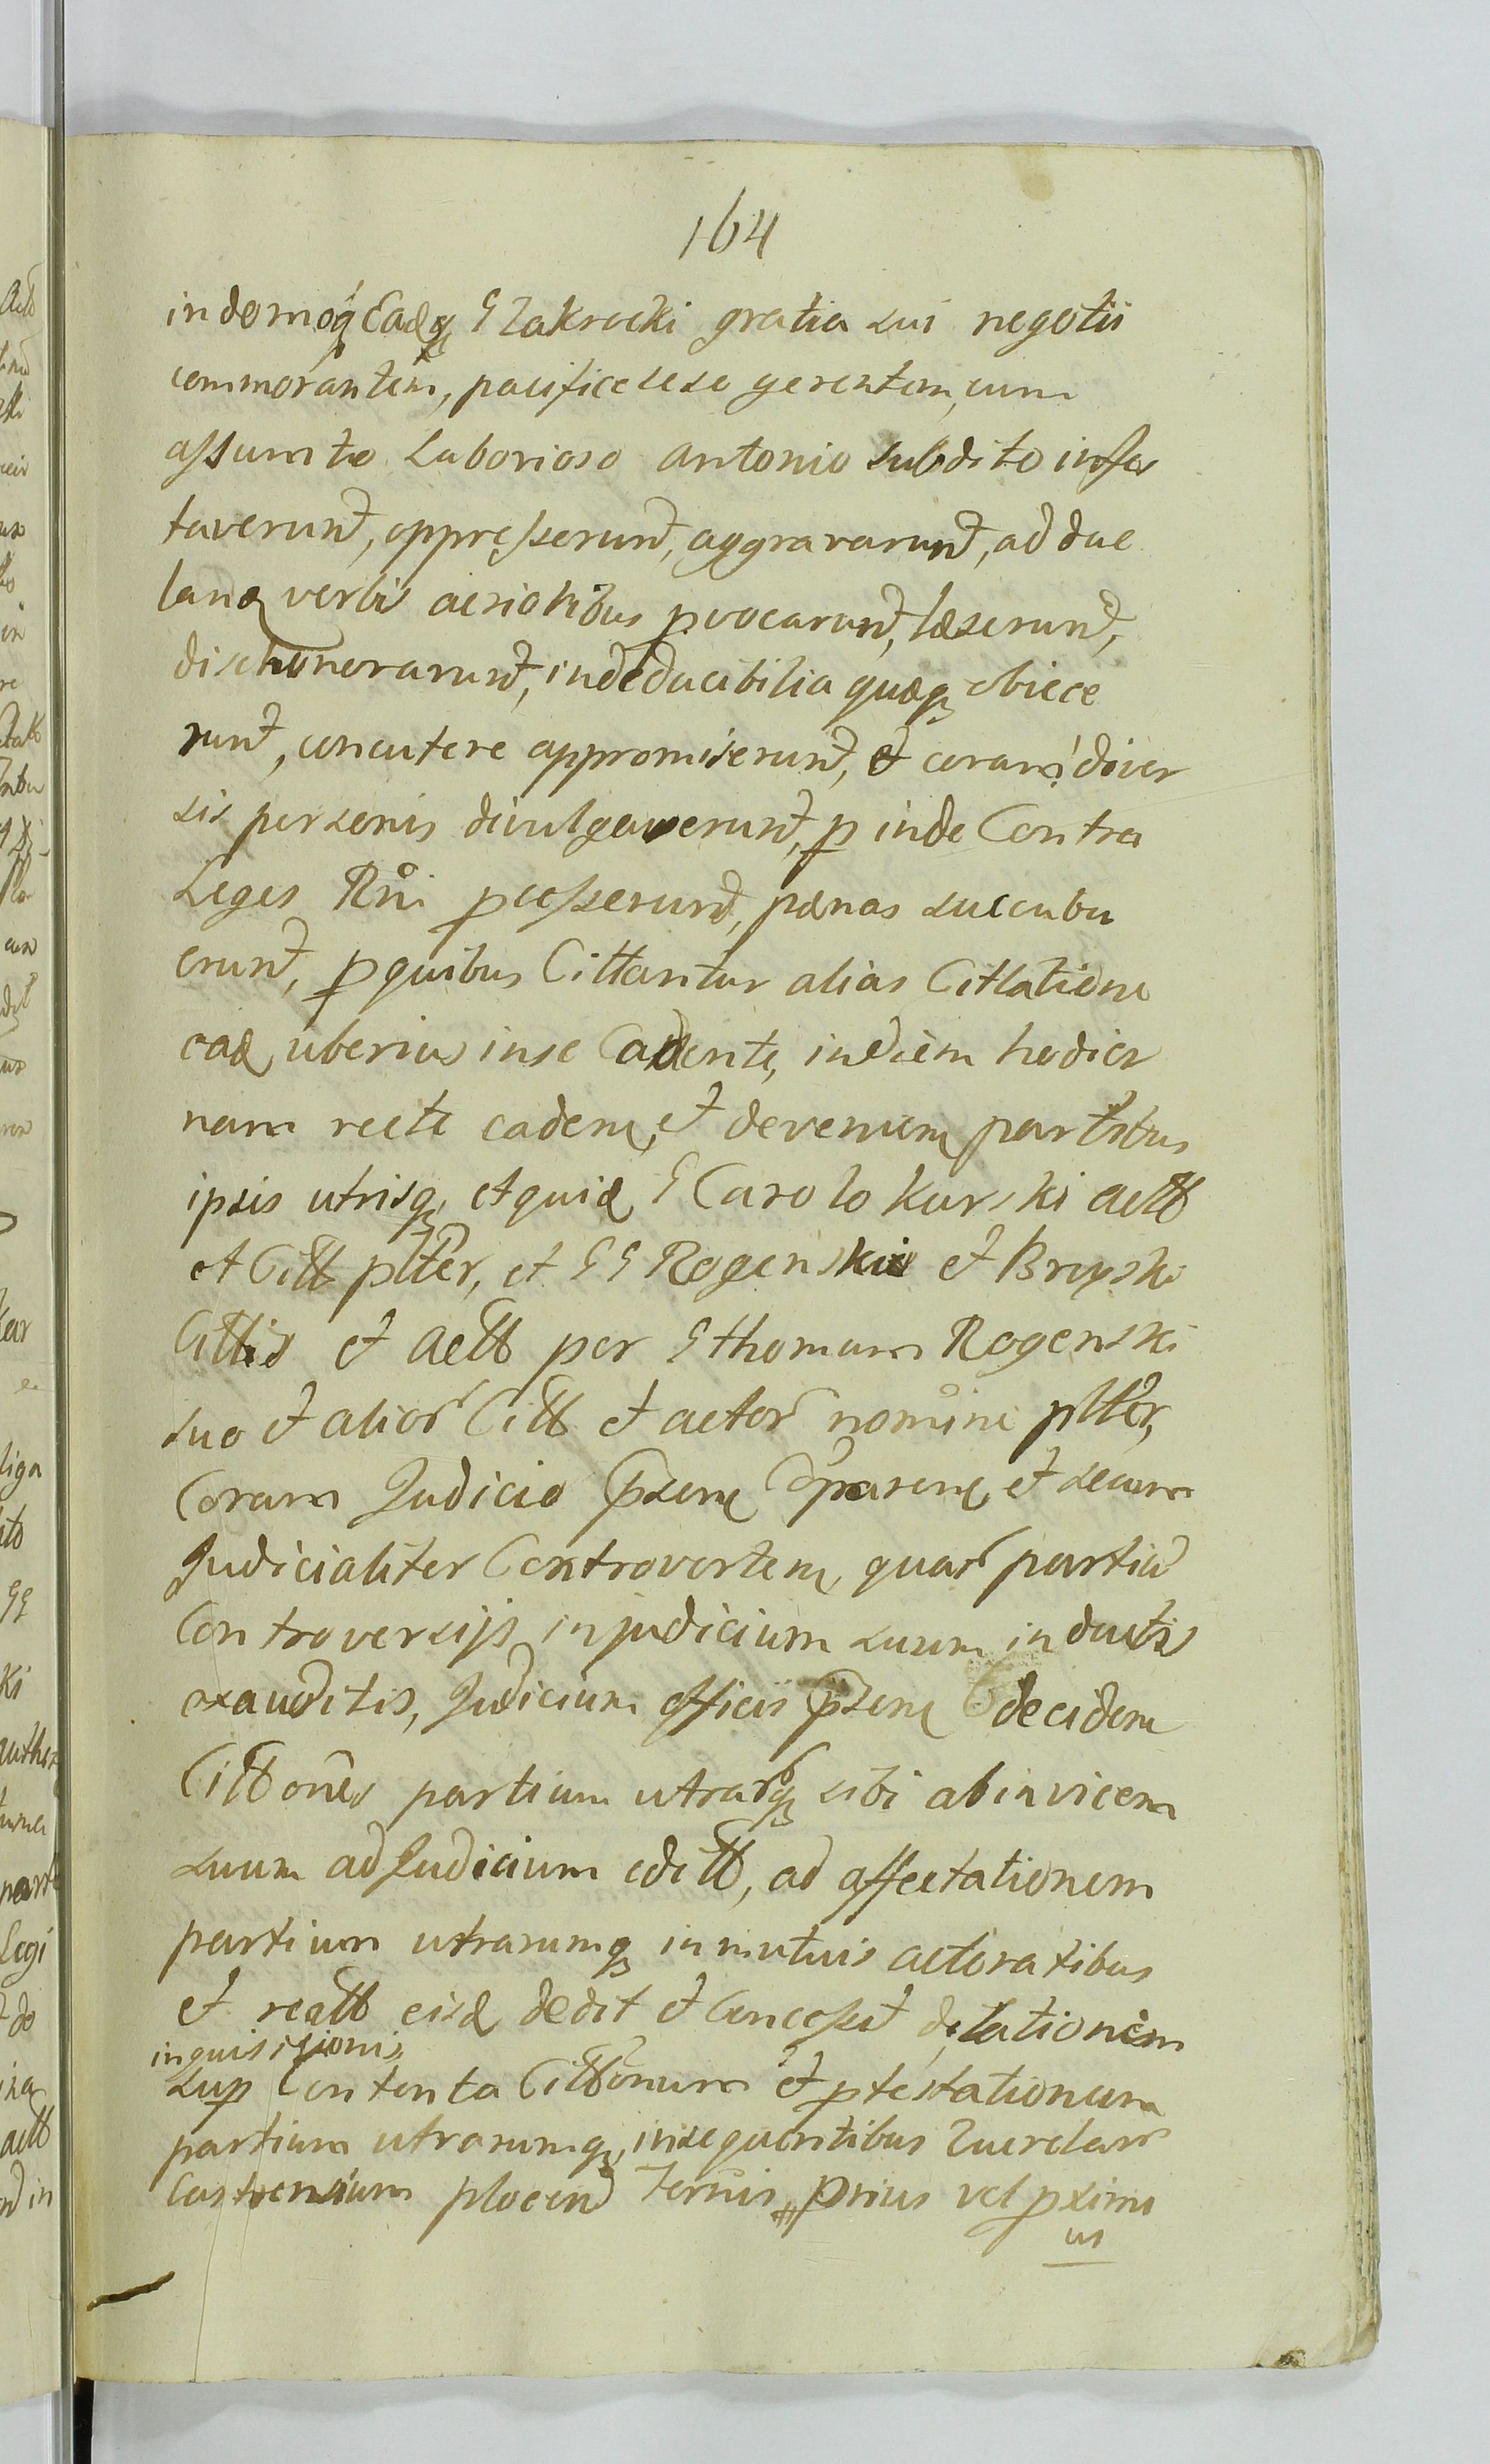 164
in domoq Eadq G Zakrocki gratia sui negotii
commorantem, pacifice sese gerentem, cum
assumto Laborioso Antonio subdito infes
taverunt, oppresserunt, aggravarunt, ad due
lanq verbis acrioribus pvocarunt, læserunt,
dischonorarunt, indeducibilia quæq obiece
runt, concutere appromiserunt, et coram diver
sis personis divulgaverunt, p inde Contra
Leges Rni pcesserunt, pænas succubu
erunt, p quibus Cittantur alias Cittatione
ead uberius in se Cadente, in diem hodier
nam recte caden, et devenien partibus
ipsis utrisq, et quid G Carolo Kurski actt
et Citt pltter, et GG Rogenskie et Bryski
Cittis et Actt per G Thomam Rogenski
suo et alior Citt et actor nomine pltter,
Coram Judicio psen Comparen et secum
Judicialiter Controverten, quar partiu
Controversijs in judicium suum inductis
exauditis, Judicium officii psen deciden
Cittones partium utrarq sibi ab invicem
suum ad Judicium editt, ad affectationem
partium utrarumq in mutuis actoratibus
et reatt eisd dedit et Concessit dilationem
inquisitionis
Sup Contenta Cittonum et ptestationum
partium utrarumq, insequentibus Querelarr
Castrensium plocen Termis, prius vel pximi
us